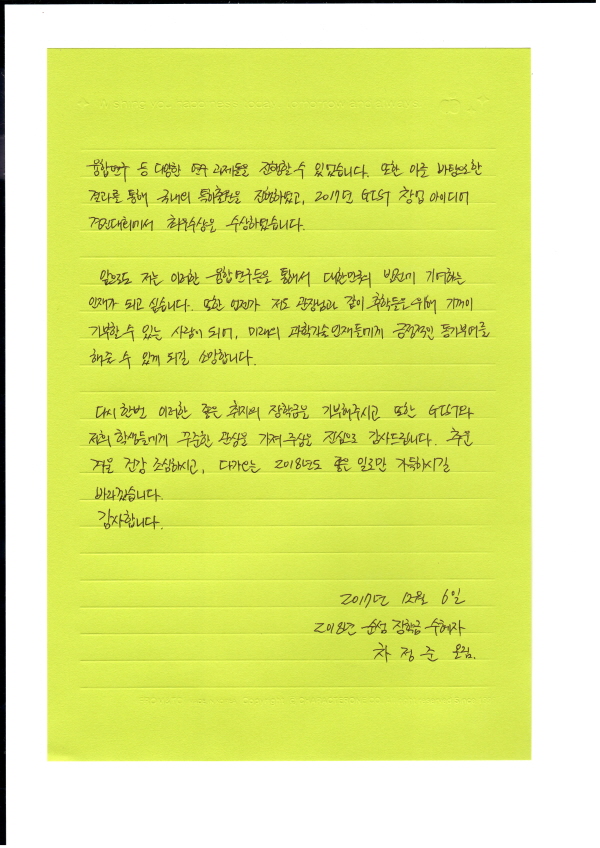 융합연구 등 다양한 연구 과제들을 진행할 수 있었습니다. 또한 이를 바탕으로한
결과를 통해 국내외 특허출원을 진행하였고, 2017년 GIST 창업 아이디어
경진대회에서 최우수상을 수상하였습니다.
앞으로도 저는 이러한 융합연구들을 통해서 대한민국의 발전에 기여하는
인재가 되고 싶습니다. 또한 언젠가 저도 관장님과 같이 후학들을 위해 기꺼이
기부할 수 있는 사람이 되어, 미래의 과학기술 인재들에게 긍정적인 동기부여를
해줄 수 있게 되길 소망합니다.
다시 한번 이러한 좋은 취지의 장학금을 기부해주시고 또한 GIST와
저희 학생들에게 꾸준한 관심을 가져주심을 진심으로 감사드립니다. 추운
겨울 건강 조심하시고, 다가오는 2018년도 좋은 일로만 가득하시길
바라겠습니다.
감사합니다.
2017년 12월 6일
2018년 순성 장학금 수혜자
차정준 올림.